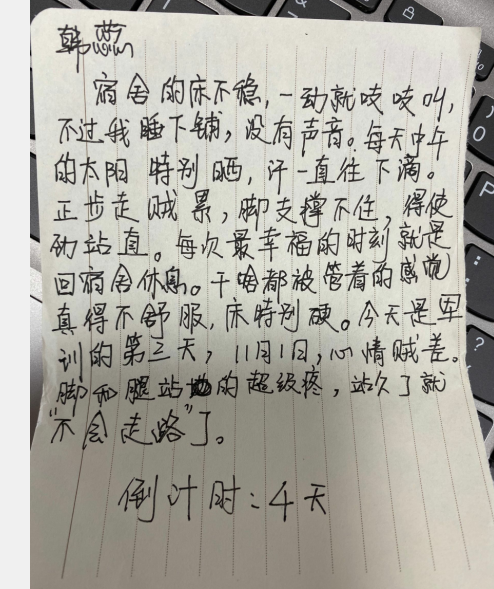 韩蕊
宿舍的床不稳，一动就吱吱叫，
不过我睡下铺，没有声音。每天中午
的太阳 特别晒，汗一直往下滴。
正步走 贼累，脚支撑不住，得使
劲站直。每次最幸福的时刻就是
回宿舍休息。干啥都被管着的感觉
真得不舒服，床特别硬。今天是军
训的第三天，11月1日，心情贼差。
脚和腿站的超级疼，站久了就
“不会走路”了。
倒计时：4天